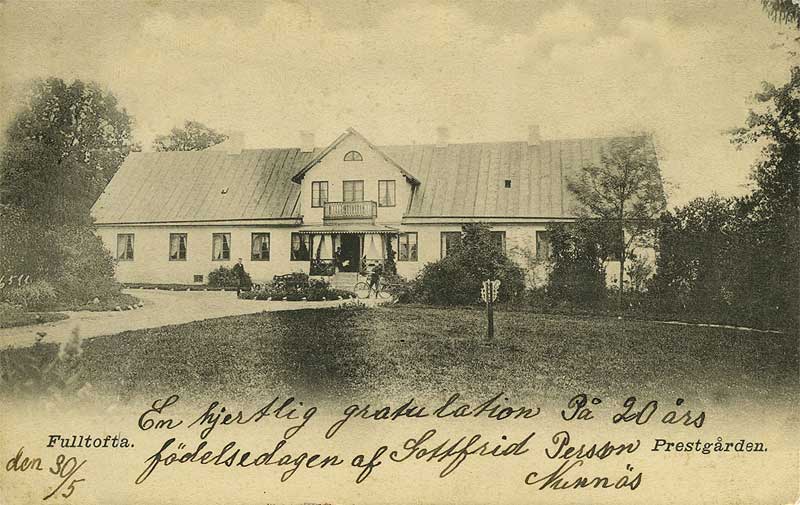 En hjertlig gratulation På 20 års
Fulltofta.
födelsedagen af Gottfrid Person
Prestgården.
den 30/5
Nunnäs
6511